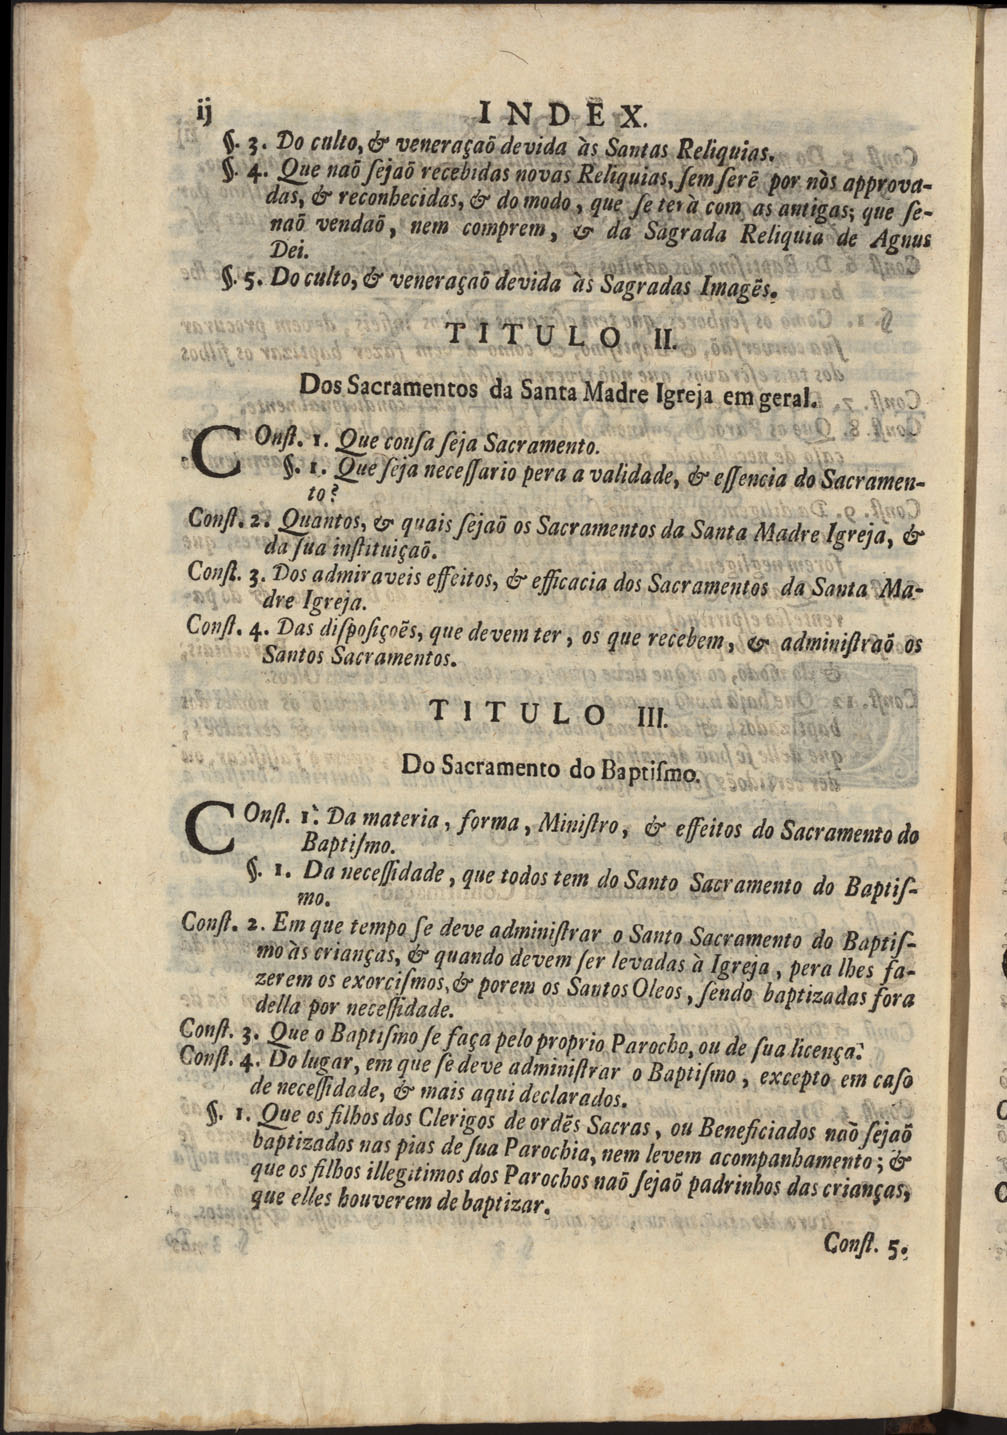 ij INDEX.
§. 3. Do culto, & veneraçaõ devida às Santas Reliquias.
§. 4. Que naõ ſejaõ recebidas novas Reliquias, ſem ſerẽ por nòs approva-
das, & reconhecidas, & do modo, que ſe terà com as antigas; que ſe-
naõ vendaõ, nem comprem, & da Sagrada Reliquia de Agnus
Dei.
§. 5. Do culto, & veneraçaõ devida às Sagradas Imagẽs.
TITULO II.
Dos Sacramentos da Santa Madre Igreja em geral.
COnſt. 1. Que couſa ſeja Sacramento.
§. 1. Que ſeja neceſſario pera a validade, & eſſencia do Sacramen-
to?
Conſt. 2. Quantos, & quais ſejaõ os Sacramentos da Santa Madre Igreja, &
da ſua inſtituiçaõ.
Conſt. 3. Dos admiraveis effeitos, & efficacia dos Sacramentos da Santa Ma-
dre Igreja.
Conſt. 4. Das diſpoſiçoẽs, que devem ter, os que recebem, & adminiſtraõ os
Santos Sacramentos.
TITULO III.
Do Sacramento do Baptiſmo.
COnſt. 1. Da materia, forma, Miniſtro, & effeitos do Sacramento do
Baptiſmo.
§. 1. Da neceſſidade, que todos tem do Santo Sacramento do Baptiſ-
mo.
Conſt. 2. Em que tempo ſe deve adminiſtrar o Santo Sacramento do Baptiſ-
mo às crianças, & quando devem ſer levadas à Igreja, pera lhes fa-
zerem os exorciſmos, & porem os Santos Oleos, ſendo baptizadas fora
della por neceſſidade.
Conſt. 3. Que o Baptiſmo ſe faça pelo proprio Parocho, ou de ſua licença.
Conſt. 4. Do lugar, em que ſe deve adminiſtrar o Baptiſmo, excepto em caſo
de neceſſidade, & mais aqui declarados.
§. 1. Que os filhos dos Clerigos de ordẽs Sacras, ou Beneficiados naõ ſejaõ
baptizados nas pias de ſua Parochia, nem levem acompanhamento; &
que os filhos illegitimos dos Parochos naõ ſejaõ padrinhos das crianças,
que elles houverem de baptizar.
Conſt. 5.